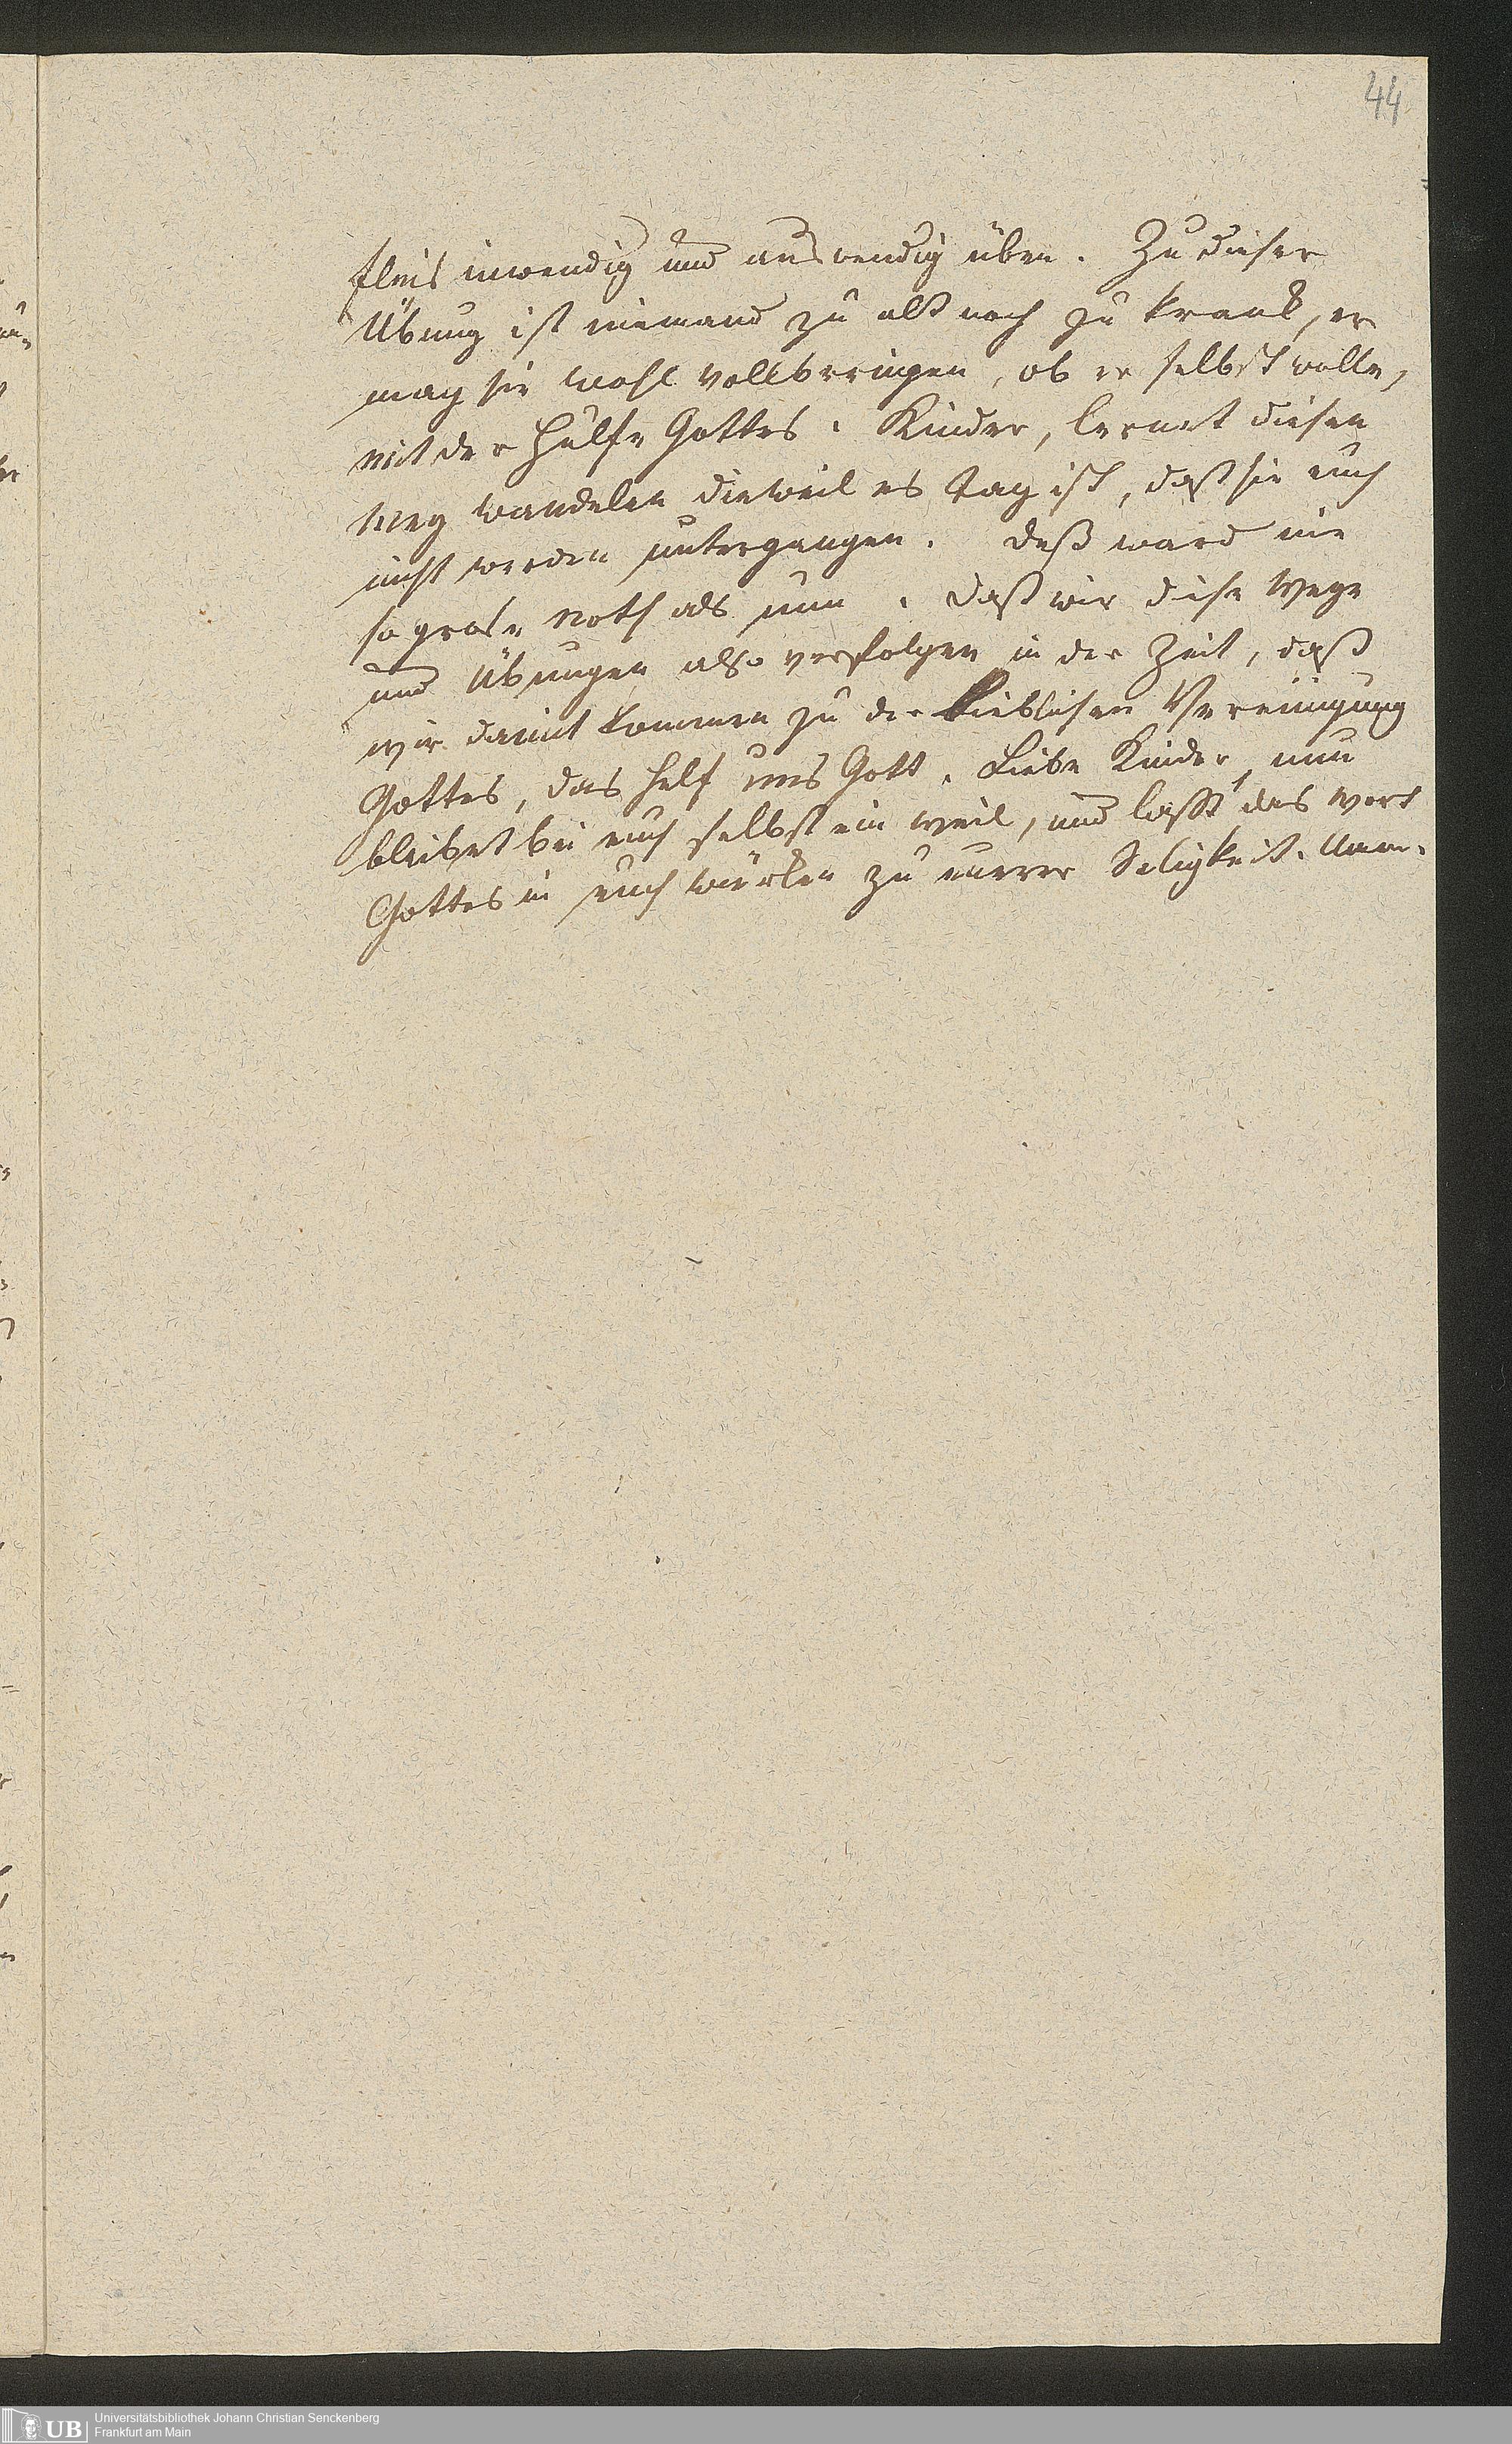 44
fleis inwendig und auswendig üben. Zu dieser
Übung ist niemand zu alt noch zu krank, er
mag sie wohl vollbringen, ob er selbst wolle,
mit der Hülfe Gottes. Kinder, lernet diesen
Weg wandelen dieweil es tag ist, daß sie euch
nicht werden untergangen. deß ward nie
so große Noth als nun. daß wir diese Wege
und Übungen also verfolgen in der Zeit, daß
wir damit kommen zu der lieblichen Vereinigung
Gottes, das helf uns Gott. Liebe Kinder, nun
bleibet bei euch selbst ein weil, und laßt das wort
Gottes in euch würken zu eurer Seligkeit. Amen.
UB
Universitätsbibliothek Johann Christian Senckenberg
Frankfurt am Main